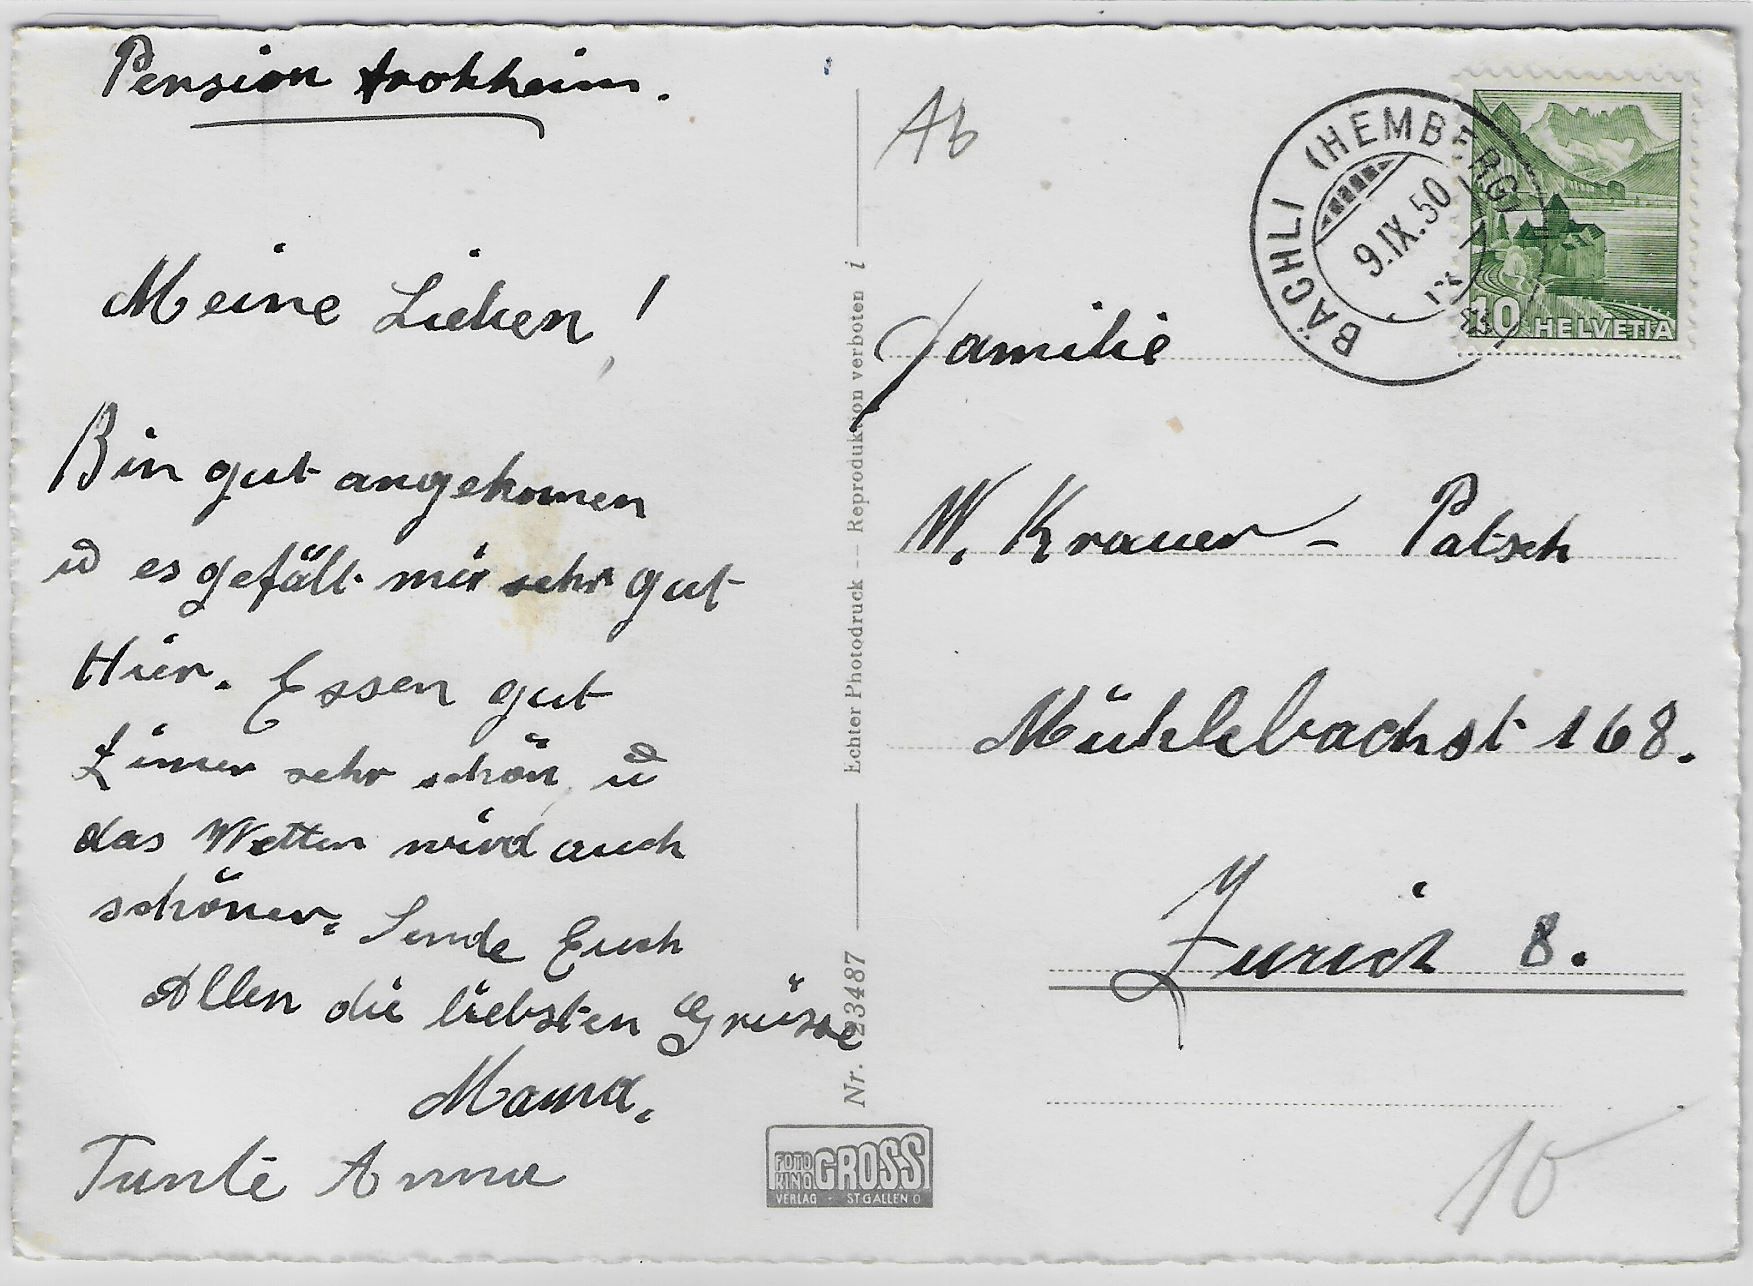 Pension
Meine Lieben!
Bin gut angekomen
u es gefält mir sehr gut
Hier. Essen gut
Zimer sehr schön, u
das Wetter wird auch
schöner. Sende Euch
Allen die liebsten Grüsse
Mama.
Tante Anna
Echter Photodruck – Reproduktion verboten i
Nr. 23487
FOTO KINO GROSS
VERLAG - ST GALLEN O
Ab
BÄCHLI (HEMBERG)
9.IX.50
10 HELVETIA
Familie
W. Krauer – Patsch
Mühlebachst 168.
Zürich 8.
10